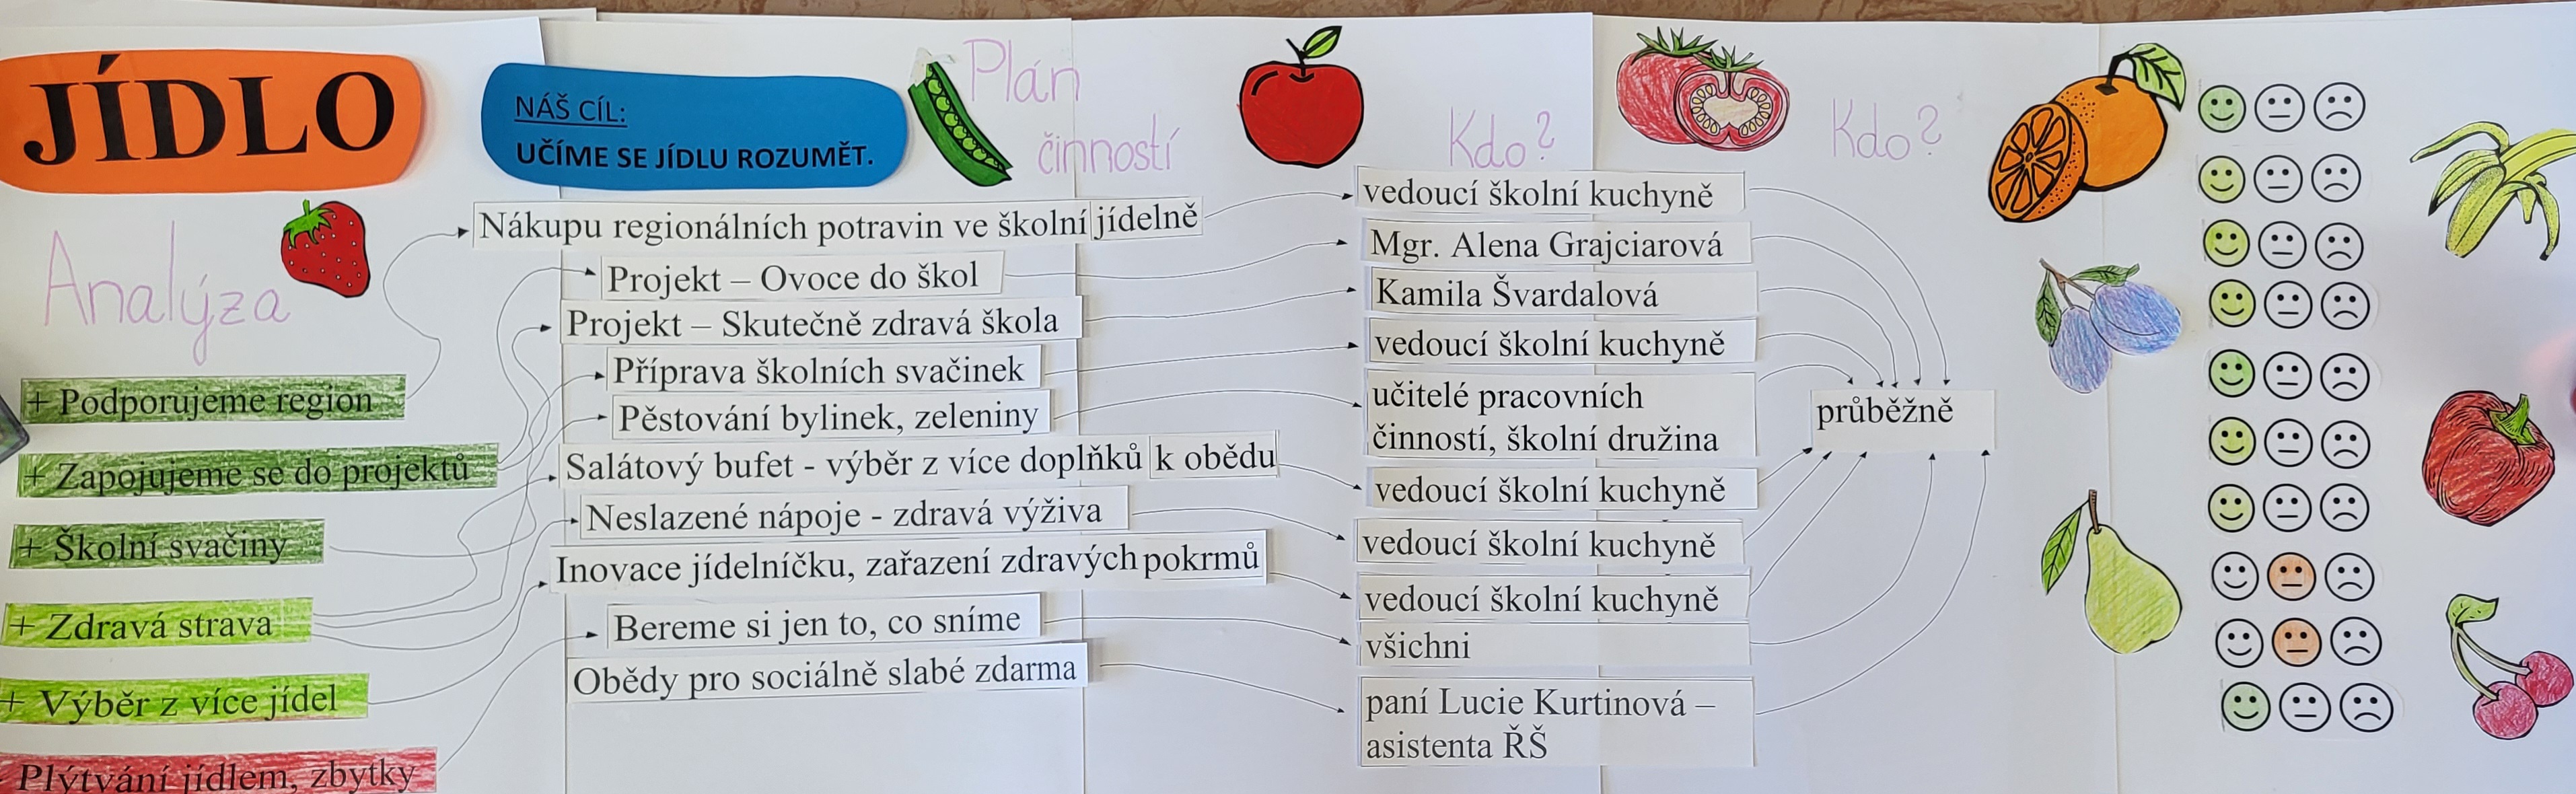 JÍDLO
NÁŠ CÍL:
UČÍME SE JÍDLU ROZUMĚT.
Plán
činností
Kdo?
Kdo?
Analýza
+ Podporujeme region
+ Zapojujeme se do projektů
+ Školní svačiny
+ Zdravá strava
+ Výběr z více jídel
- Plýtvání jídlem, zbytky
Nákupu regionálních potravin ve školní jídelně
Projekt – Ovoce do škol
Projekt – Skutečně zdravá škola
Příprava školních svačinek
Pěstování bylinek, zeleniny
Salátový bufet - výběr z více doplňků k obědu
Neslazené nápoje - zdravá výživa
Inovace jídelníčku, zařazení zdravých pokrmů
Bereme si jen to, co sníme
Obědy pro sociálně slabé zdarma
vedoucí školní kuchyně
Mgr. Alena Grajciarová
Kamila Švardalová
vedoucí školní kuchyně
učitelé pracovních
činností, školní družina
vedoucí školní kuchyně
vedoucí školní kuchyně
vedoucí školní kuchyně
všichni
paní Lucie Kurtinová –
asistenta ŘŠ
průběžně